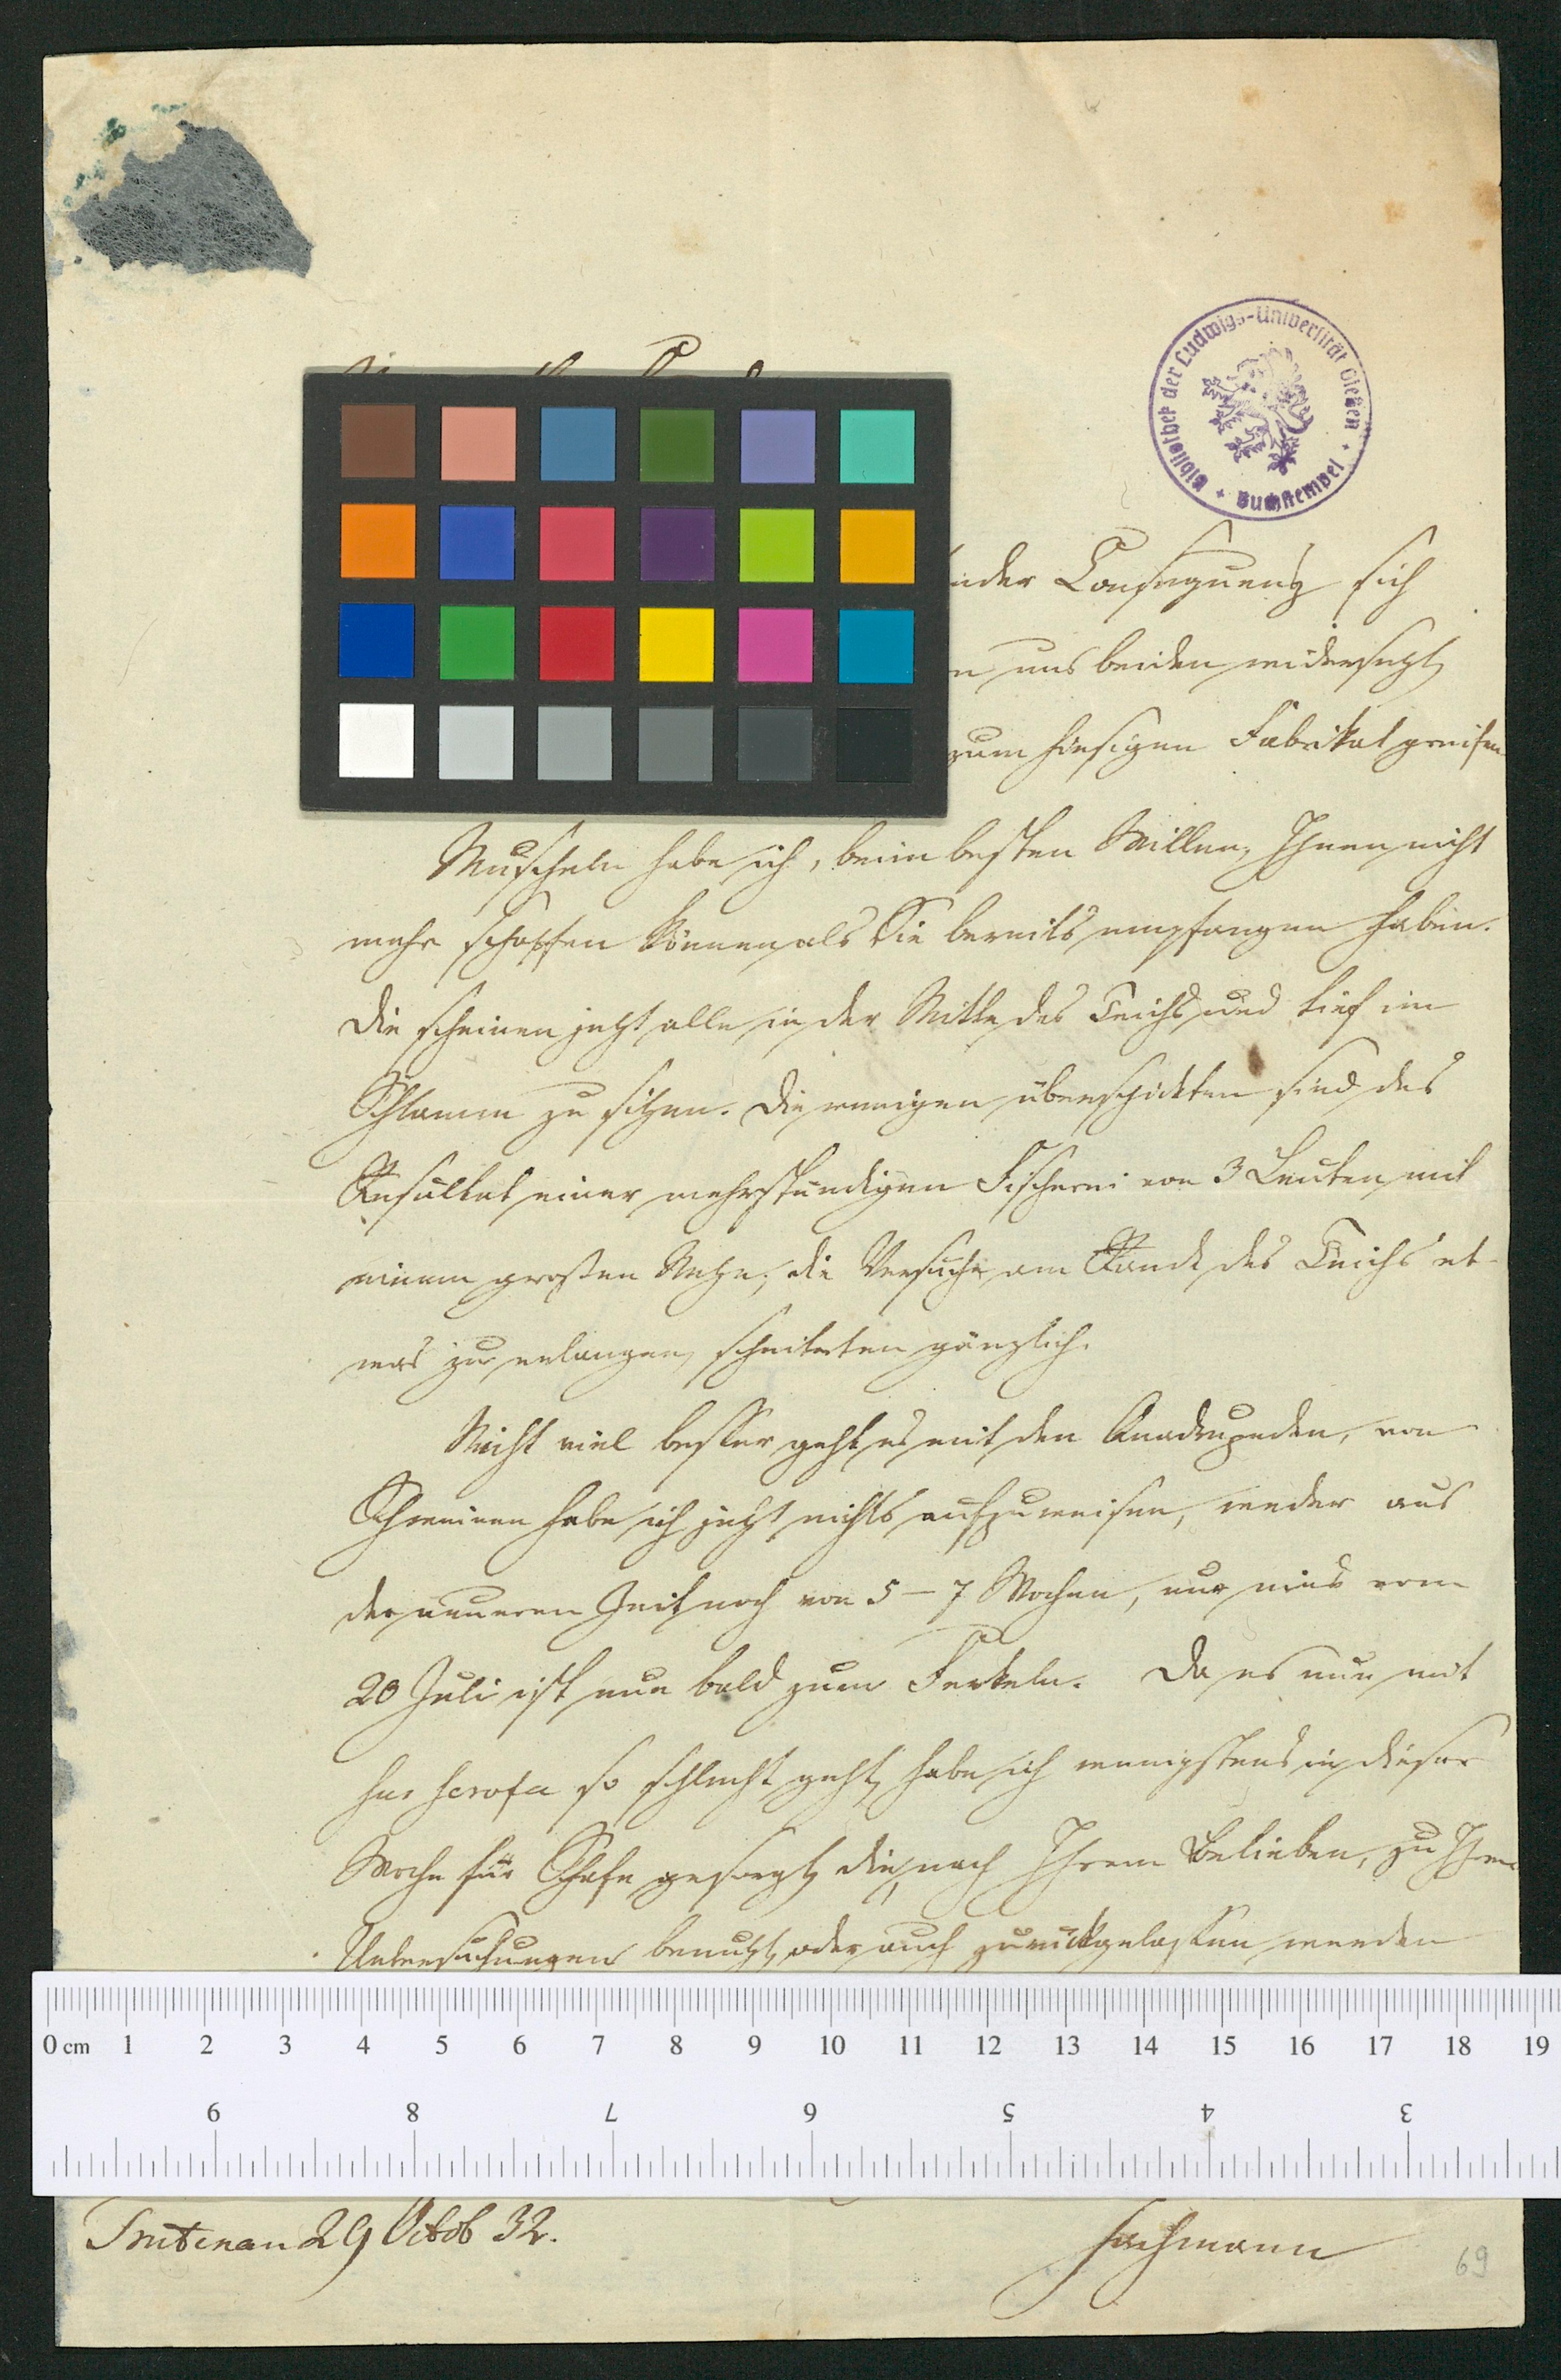 Bibliothek der Ludwigs-Universität Gießen + Buchstempel +
Consequenz sich
uns beiden widersetzt
zum hiesigen Fabrikat greifen
Muscheln habe ich, beim besten Willen, Ihnen nicht
mehr schaffen können als Sie bereits empfangen haben.
Die scheinen jetzt alle in der Mitte des Teichs und tief im
Schlamm zu sitzen. Die wenigen überschickten sind das
Resultat einer mehrstündigen Fischerei von 3 Leuten mit
einem großen Netze; die Versuche am Rande des Teichs et-
was zu erlangen, scheiterten gänzlich.
Nicht viel besser geht es mit den Quadrupeden, von
Schweinen habe ich jetzt nichts aufzuweisen, weder aus
der neueren Zeit noch von 5 – 7 Wochen, nur eine vom
20 Juli ist nun bald zum Ferkeln. Da es nun mit
Sus Scrofa so schlecht geht, habe ich wenigstens in dieser
Woche für Schafe gesorgt, die, nach Ihrem Belieben, zu Ihren
Untersuchungen benutzt, oder auch zurückgelassen werden
0 cm 1 2 3 4 5 6 7 8 9 10 11 12 13 14 15 16 17 18 19
9 8 7 6 5 4 3
Trutenau 29 Octob 32.
Jachmann
69